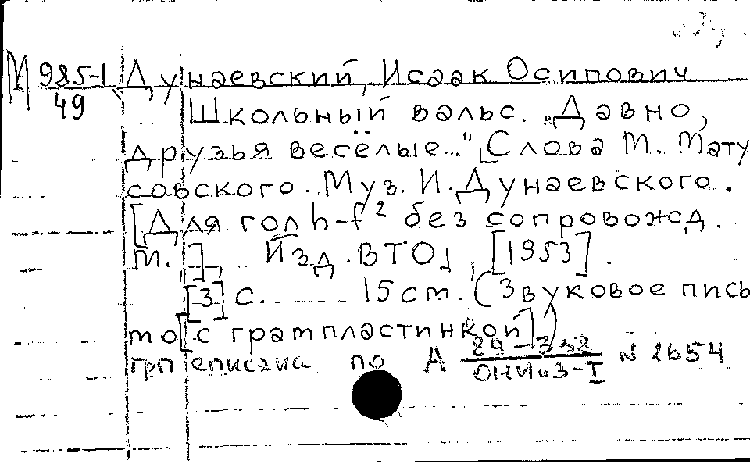 М 985-1 Дунаевский, Исаак Осипович
49
Школьный вальс. „Давно,
друзья весёлые..." [Слова М. Мату
совского. Муз. И. Дунаевского.
[Для гол h-f² без сопровожд.
М.], Изд. ВТО, [1953].
[3] с. 15 см. (Звуковое пись
мо [с грампластинкой])
по А № 2654
ОНИиЗ-I